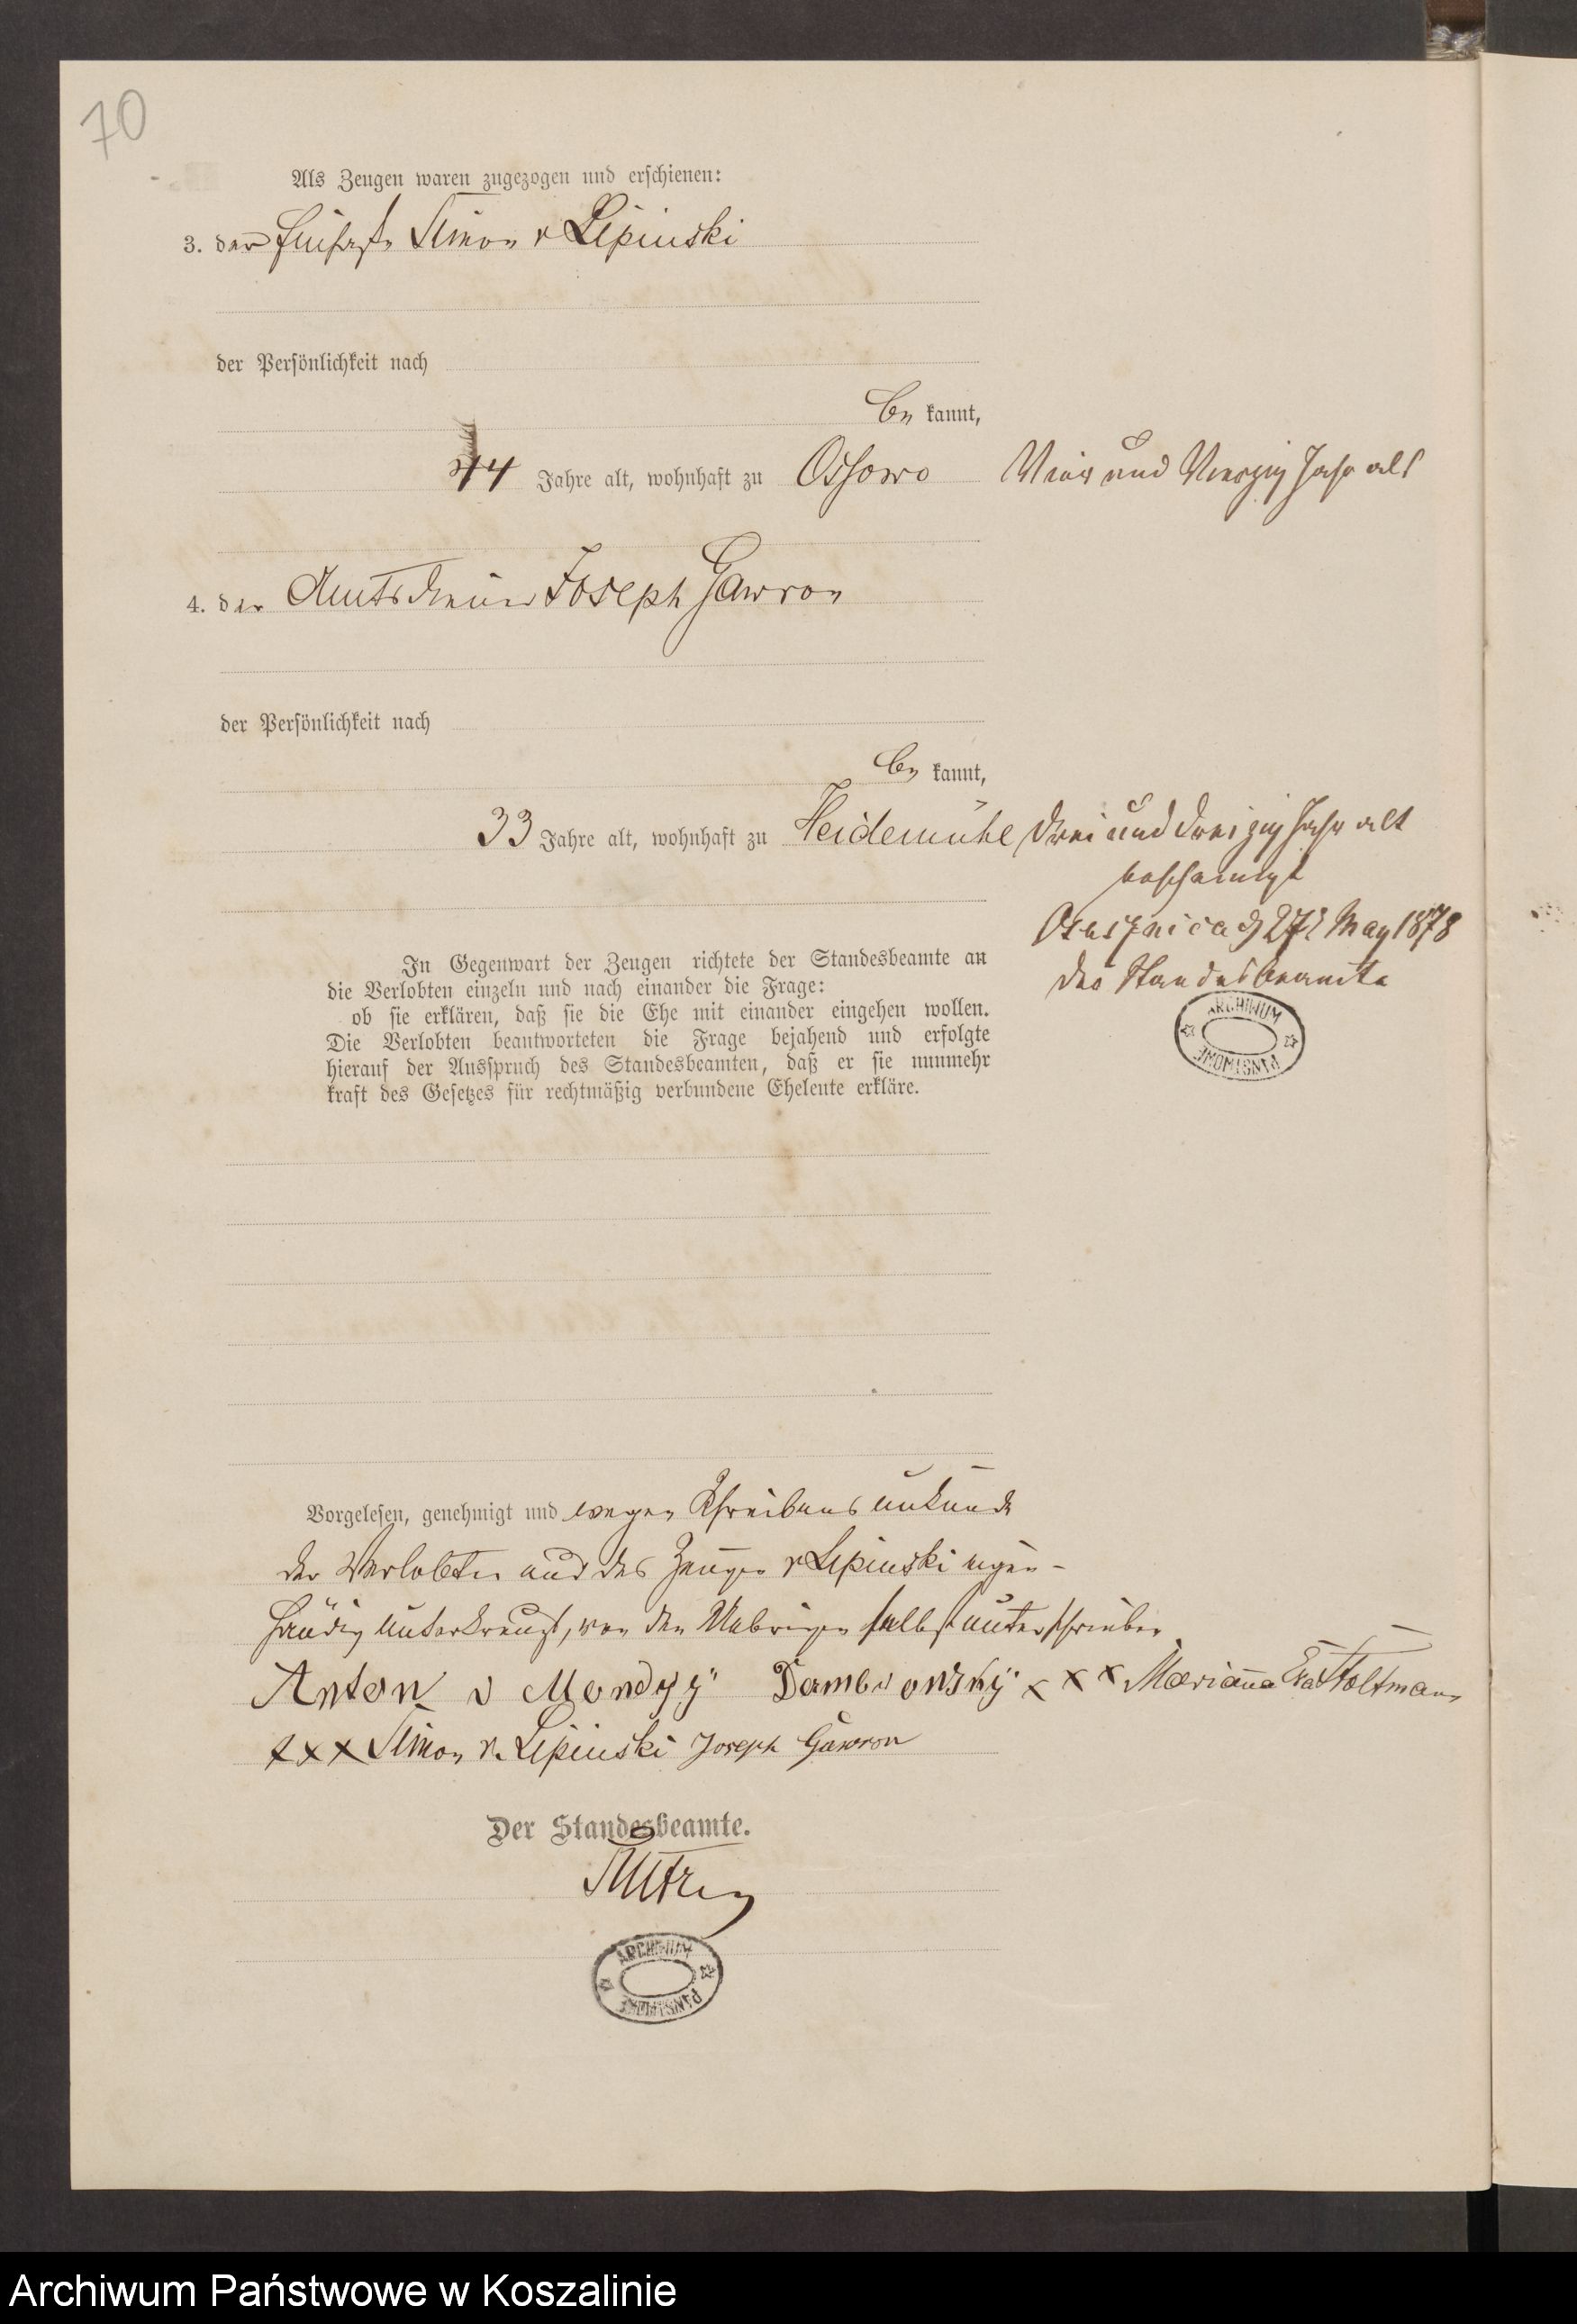 70
Als Zeugen waren zugezogen und erschienen:
3. der Simon v Lipinski
der Persönlichkeit nach
be kannt,
44 Jahre alt, wohnhaft zu Ossowo Vier und Vierzig Jahr alt
4. der Amtsdiener Joseph Gawron
der Persönlichkeit nach
be kannt,
33 Jahre alt, wohnhaft zu Heidemühl drei und dreizig Jahr alt
bescheinigt
27 May 1878
der Standesbeamte
ARCHIWUM PAŃSTWOWE
In Gegenwart der Zeugen richtete der Standesbeamte an
die Verlobten einzeln und nach einander die Frage:
ob sie erklären, daß sie die Ehe mit einander eingehen wollen.
Die Verlobten beantworteten die Frage bejahend und erfolgte
hierauf der Ausspruch des Standesbeamten, daß er sie nunmehr
kraft des Gesetzes für rechtmäßig verbundene Eheleute erkläre.
Vorgelesen, genehmigt und wegen Schreibens unkunde
der Verlobten und des Zeugen v Lipinski eigen-
händig unterkreuzt, von den Uebrigen selbst unterschrieben
Anton v Mondry Dambrowsky x x x Marianna Eva Stoltmann
x x x Simon v. Lipinski Joseph Gawron
Der Standesbeamte.
ARCHIWUM PAŃSTWOWE
Archiwum Państwowe w Koszalinie